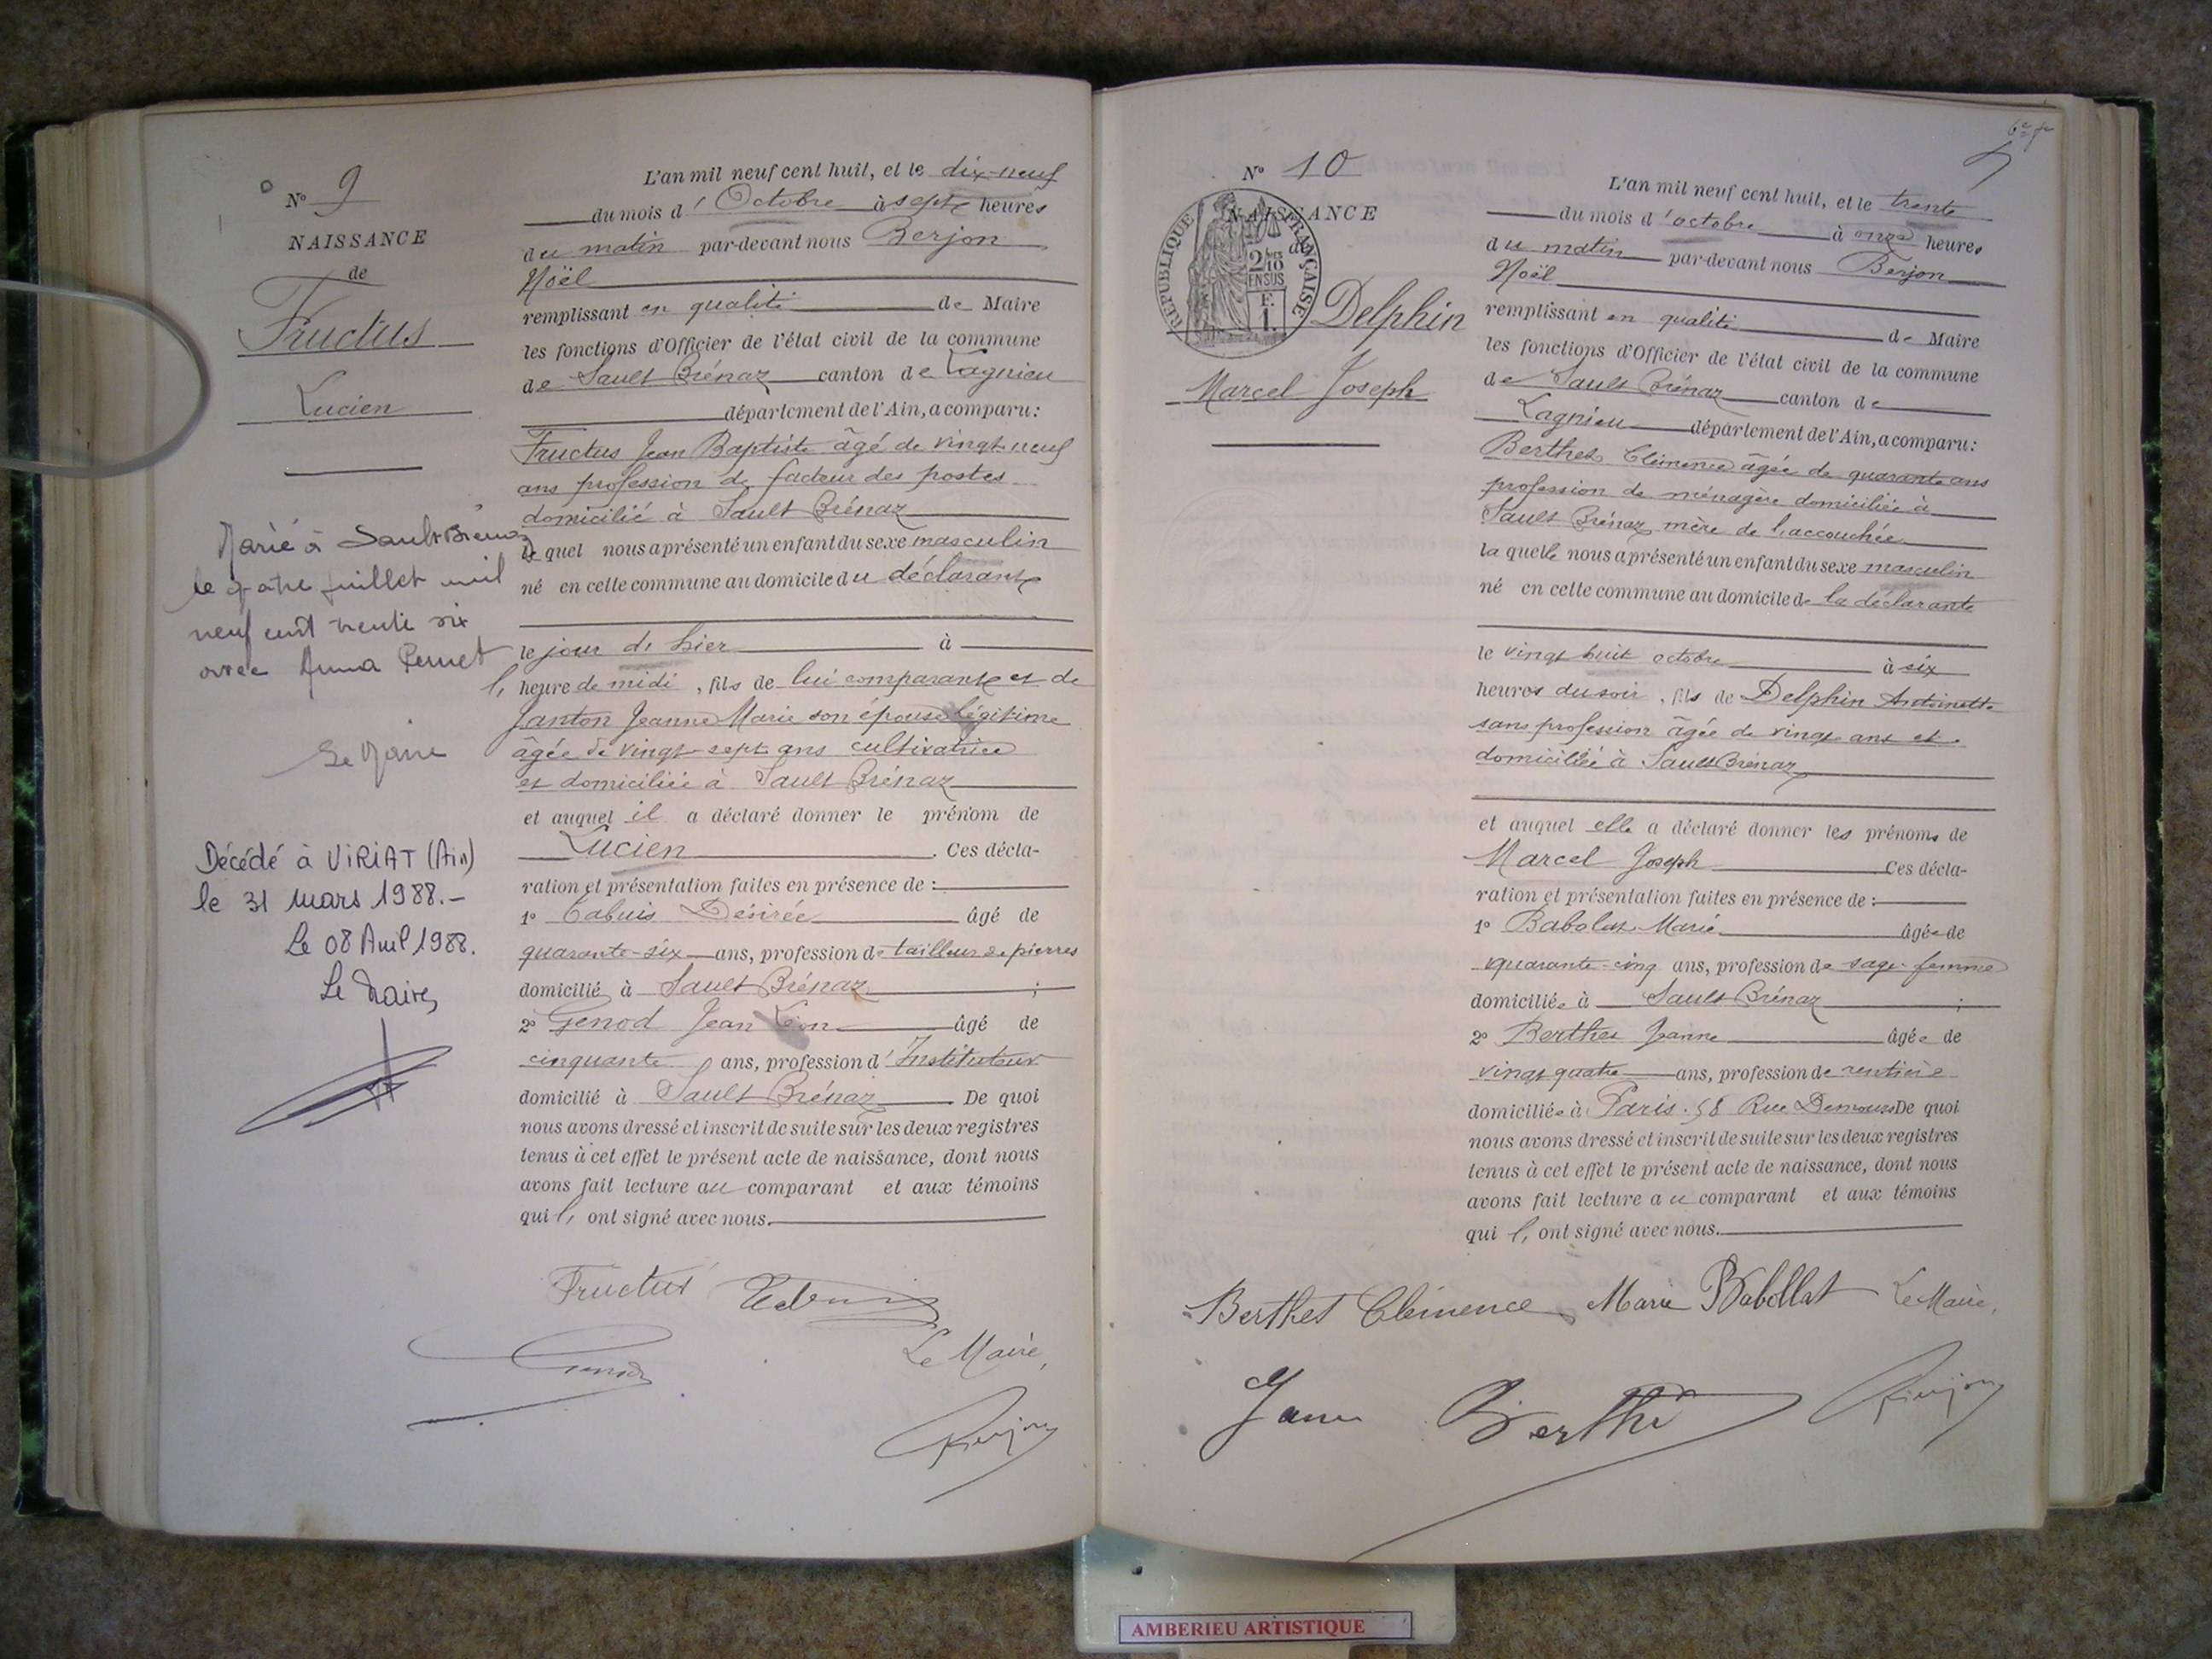 N° 9
NAISSANCE
de
Fructus
Lucien
Marié à Sault Brénaz
le quatre juillet mil
neuf cent trente six
avec Anna Pernet
Le Maire
Décédé à VIRIAT (Ain)
le 31 mars 1988.-
Le 08 Avril 1988.
Le Maire,
L'an mil neuf cent huit, et le dix-neuf
du mois d'Octobre à sept heures
du matin par-devant nous Berjon
Noël
remplissant en qualité de Maire
les fonctions d'Officier de l'état civil de la commune
de Sault Brénaz canton de Lagnieu
département de l'Ain, a comparu:
Fructus Jean Baptiste âgé de vingt-neuf
ans profession de facteur des postes
domicilié à Sault Brénaz
le quel nous a présenté un enfant du sexe masculin
né en cette commune au domicile du déclarant
le jour de hier à
l' heure de midi, fils de lui comparant et de
Janton Jeanne Marie son épouse légitime
âgée de vingt-sept ans cultivatrice
et domiciliée à Sault Brénaz
et auquel il a déclaré donner le prénom de
Lucien. Ces décla-
ration et présentation faites en présence de :
1° Tabuis Désirée âgé de
quarante-six ans, profession de tailleur de pierres
domicilié à Sault Brénaz ;
2° Genod Jean Léon âgé de
cinquante ans, profession d'Instituteur
domicilié à Sault Brénaz. De quoi
nous avons dressé et inscrit de suite sur les deux registres
tenus à cet effet le présent acte de naissance, dont nous
avons fait lecture au comparant et aux témoins
qui l'ont signé avec nous.
Fructus Tabuis
Genod
Le Maire,
Berjon
N° 10
NAISSANCE
de
RÉPUBLIQUE FRANÇAISE
2/10
EN SUS
F.
1.
Delphin
Marcel Joseph
L'an mil neuf cent huit, et le trente
du mois d'octobre à onze heures
du matin par-devant nous Berjon
Noël
remplissant en qualité de Maire
les fonctions d'Officier de l'état civil de la commune
de Sault Brénaz canton de
Lagnieu département de l'Ain, a comparu:
Berthet Clémence âgée de quarante ans
profession de ménagère domiciliée à
Sault Brénaz mère de l'accouchée
la quelle nous a présenté un enfant du sexe masculin
né en cette commune au domicile de la déclarante
le vingt huit octobre à six
heures du soir, fils de Delphin Antoinette
sans profession âgée de vingt ans et
domiciliée à Sault Brénaz
et auquel elle a déclaré donner les prénoms de
Marcel Joseph. Ces décla-
ration et présentation faites en présence de :
1° Babolat Marie âgée de
quarante-cinq ans, profession de sage-femme
domiciliée à Sault Brénaz ;
2° Berthet Jeanne âgée de
vingt quatre ans, profession de rentière
domiciliée à Paris. 58 Rue Demours De quoi
nous avons dressé et inscrit de suite sur les deux registres
tenus à cet effet le présent acte de naissance, dont nous
avons fait lecture au comparant et aux témoins
qui l'ont signé avec nous.
Berthet Clémence Marie Babollat Le Maire,
Berthet
Berjon
AMBERIEU ARTISTIQUE